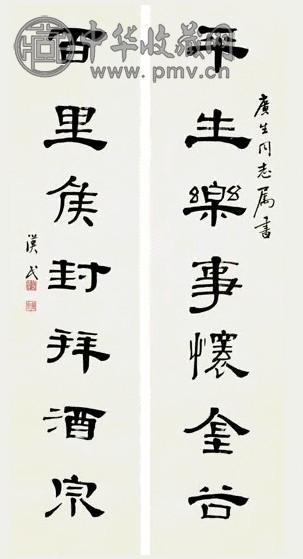 中华收藏网
www.pmv.cn
平生樂事懷金谷
廣生同志屬書
百里侯封拜酒泉
漢民